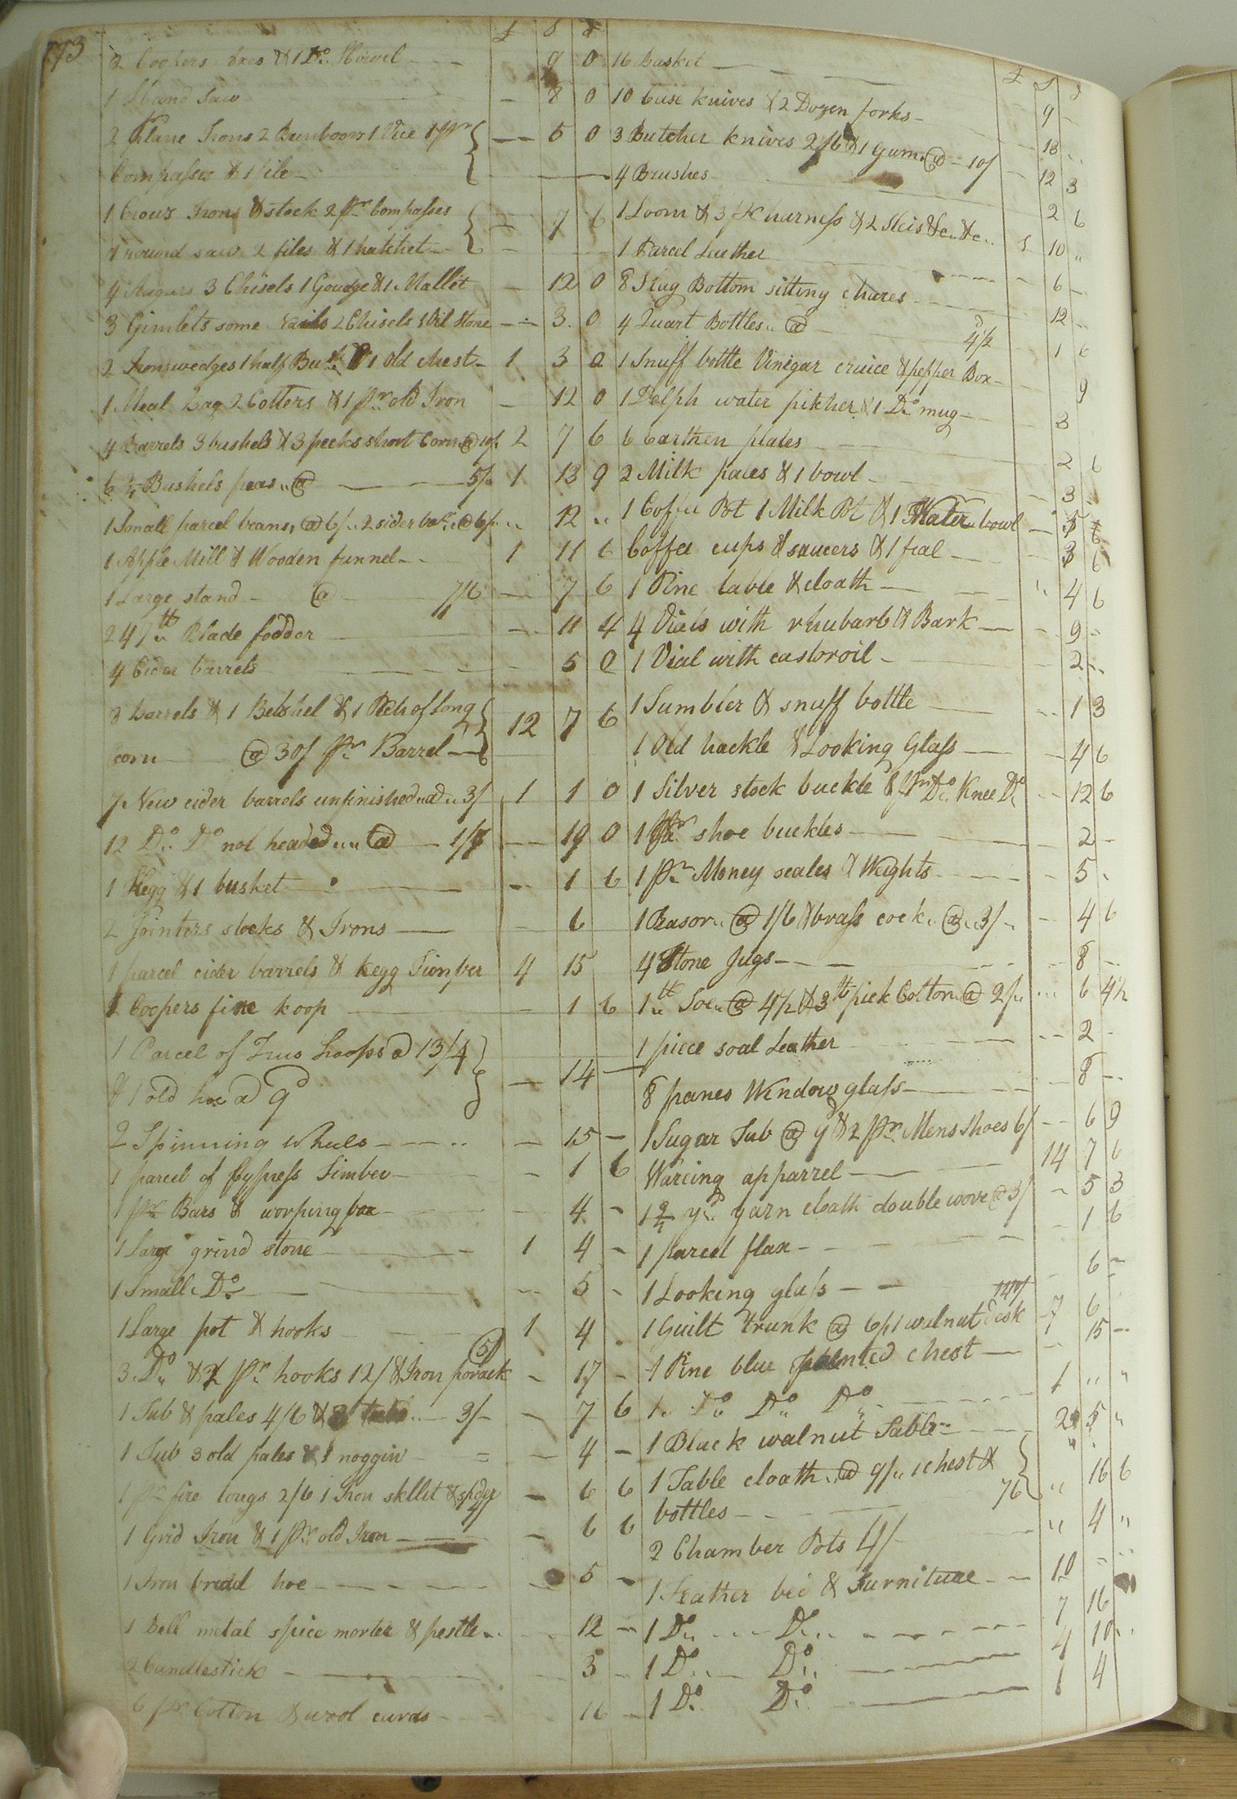 193
£ S d
2 Coopers axes & 1 Do. Howel 9 0
1 Hand Saw 8 0
2 Plane Irons 2 1 Vice 1 pr 5 0
Compasses & 1 file
1 Crouz Irons & stock 2 pr. Compasses 7 6
1 round saw 2 files & 1 hatchet
4 Augurs 3 Chisels 1 Goudge & 1 Mallet 12 0
3 Gimlets some Nails 2 Chisels 1 Oil Stone 3 0
2 Iron wedges 1 half Bush. & 1 old chest 1 3 0
1 Meal Bag 2 Cotters & 1 pr old Iron 12 0
4 Barrels 3 bushels & 3 pecks short Corn @ 10/. 2 7 6
6 3/4 Bushels peas @ 5/. 1 13 9
1 Small parcel beans @ 6/. 2 sider @ 6/. 12 "
1 Apple Mill & Wooden funnel 1 11 6
1 Large stand @ 7/6 7 6
241 lb. Blade fodder 11 4
4 Cider barrels 5 0
3 barrels & 1 Bebshel & 1 Peck of Long
corn @ 30/ pr Barrel 12 7 6
7 New cider barrels unfinished @ 3/ 1 1 0
12 Do. Do. not headed @ 1/7 19 0
1 Kegg & 1 busket 1 6
2 Jointers stocks & Irons 6
1 parcel cider barrels & Kegg Timber 4 15
1 Coopers fine koop 1 6
1 Parcel of Trus hoops @ 13/4
& 1 old hoe @ 9d 14
2 Spinning wheels 15 -
1 parcel of Cypress Timber 1 6
1 pr Bars & worping box 4 -
1 Large grind stone 1 4 -
1 Small Do 5 -
1 Large pot & hooks 1 4
3 Do. & 2 pr hooks 12/ & Iron potrack 5/ 17 -
1 Tub & pales 4/6 & 3/- 7 6
1 Tub 3 old pales & 1 noggin 4 -
1 pr fire tongs 2/6 1 Iron skllet & spider 4/ 6 6
1 Grid Iron & 1 pr old Iron 6 6
1 Iron bread hoe 5 -
1 Bell metal spice morter & pestle 12 -
2 Candlestick 3 -
6 pr Cotton & wool cards 16 -
£ S d
16 Basket 9 -
10 Case knives & 2 Dozen forks 18
3 Butcher knives 2/6 & 1 @ 10/ 12 3
4 Brushes 2 6
1 Loom & 3 harness & 2 Sleis &c. &c. 10 "
1 Parcel Leather 6 -
8 Flag Bottom sitting chares 12 -
4 Quart Bottles @ 4 1/2d 1 6
1 Snuff bottle Vinegar cruice & pepper Box 9
1 Delph water pitcher & 1 Do mug 3
6 Earthen plates 2 6
2 Milk pales & 1 bowl 3
1 Coffee Pot 1 Milk Pot & 1 Water bowl 5
Coffee cups & saucers & 1 3 6
1 Pine table & cloath 4 6
4 Vials with rhubarb & Bark 9 -
1 Vial with castoroil 2 -
1 Tumbler & snuff bottle 1 3
1 Old hackle & Looking Glass 4 6
1 Silver stock buckle & 1 pr Do. Knee Do. 12 6
1 pr shoe buckles 2 -
1 pr Money scales & Weights 5
1 Rasor @ 1/6 & brass cock @ 3/ 4 6
4 Stone Jugs 8 -
1 lb. Toe @ 4 1/2 & 3 lb pick Cotton @ 2/. 6 4 1/2
1 piece soal Leather 2 -
8 panes Window glass 8 -
1 Sugar Tub @ 9d & 2 pr Mens Shoes 6/ 6 9
Waring apparrel 14 7 6
1 3/4 yd. yarn cloath double wove @ 3/ 5 3
1 parcel flax 1 6
1 Looking glass 6 -
1 Guilt trunk @ 6/ 1 walnut desk 140/ 7 6
1 Pine blue painted chest 15 -
1 Do. Do. Do. 1 " "
1 Black walnut Table 2 5 "
1 Table cloath @ 9/. 1 chest &
bottles 7/6 16 6
2 Chamber Pots 4/ 4 "
1 Feather bed & Furniture 10 -
1 Do. Do. 7 16
1 Do. Do. 4 10
1 Do. Do. 1 4